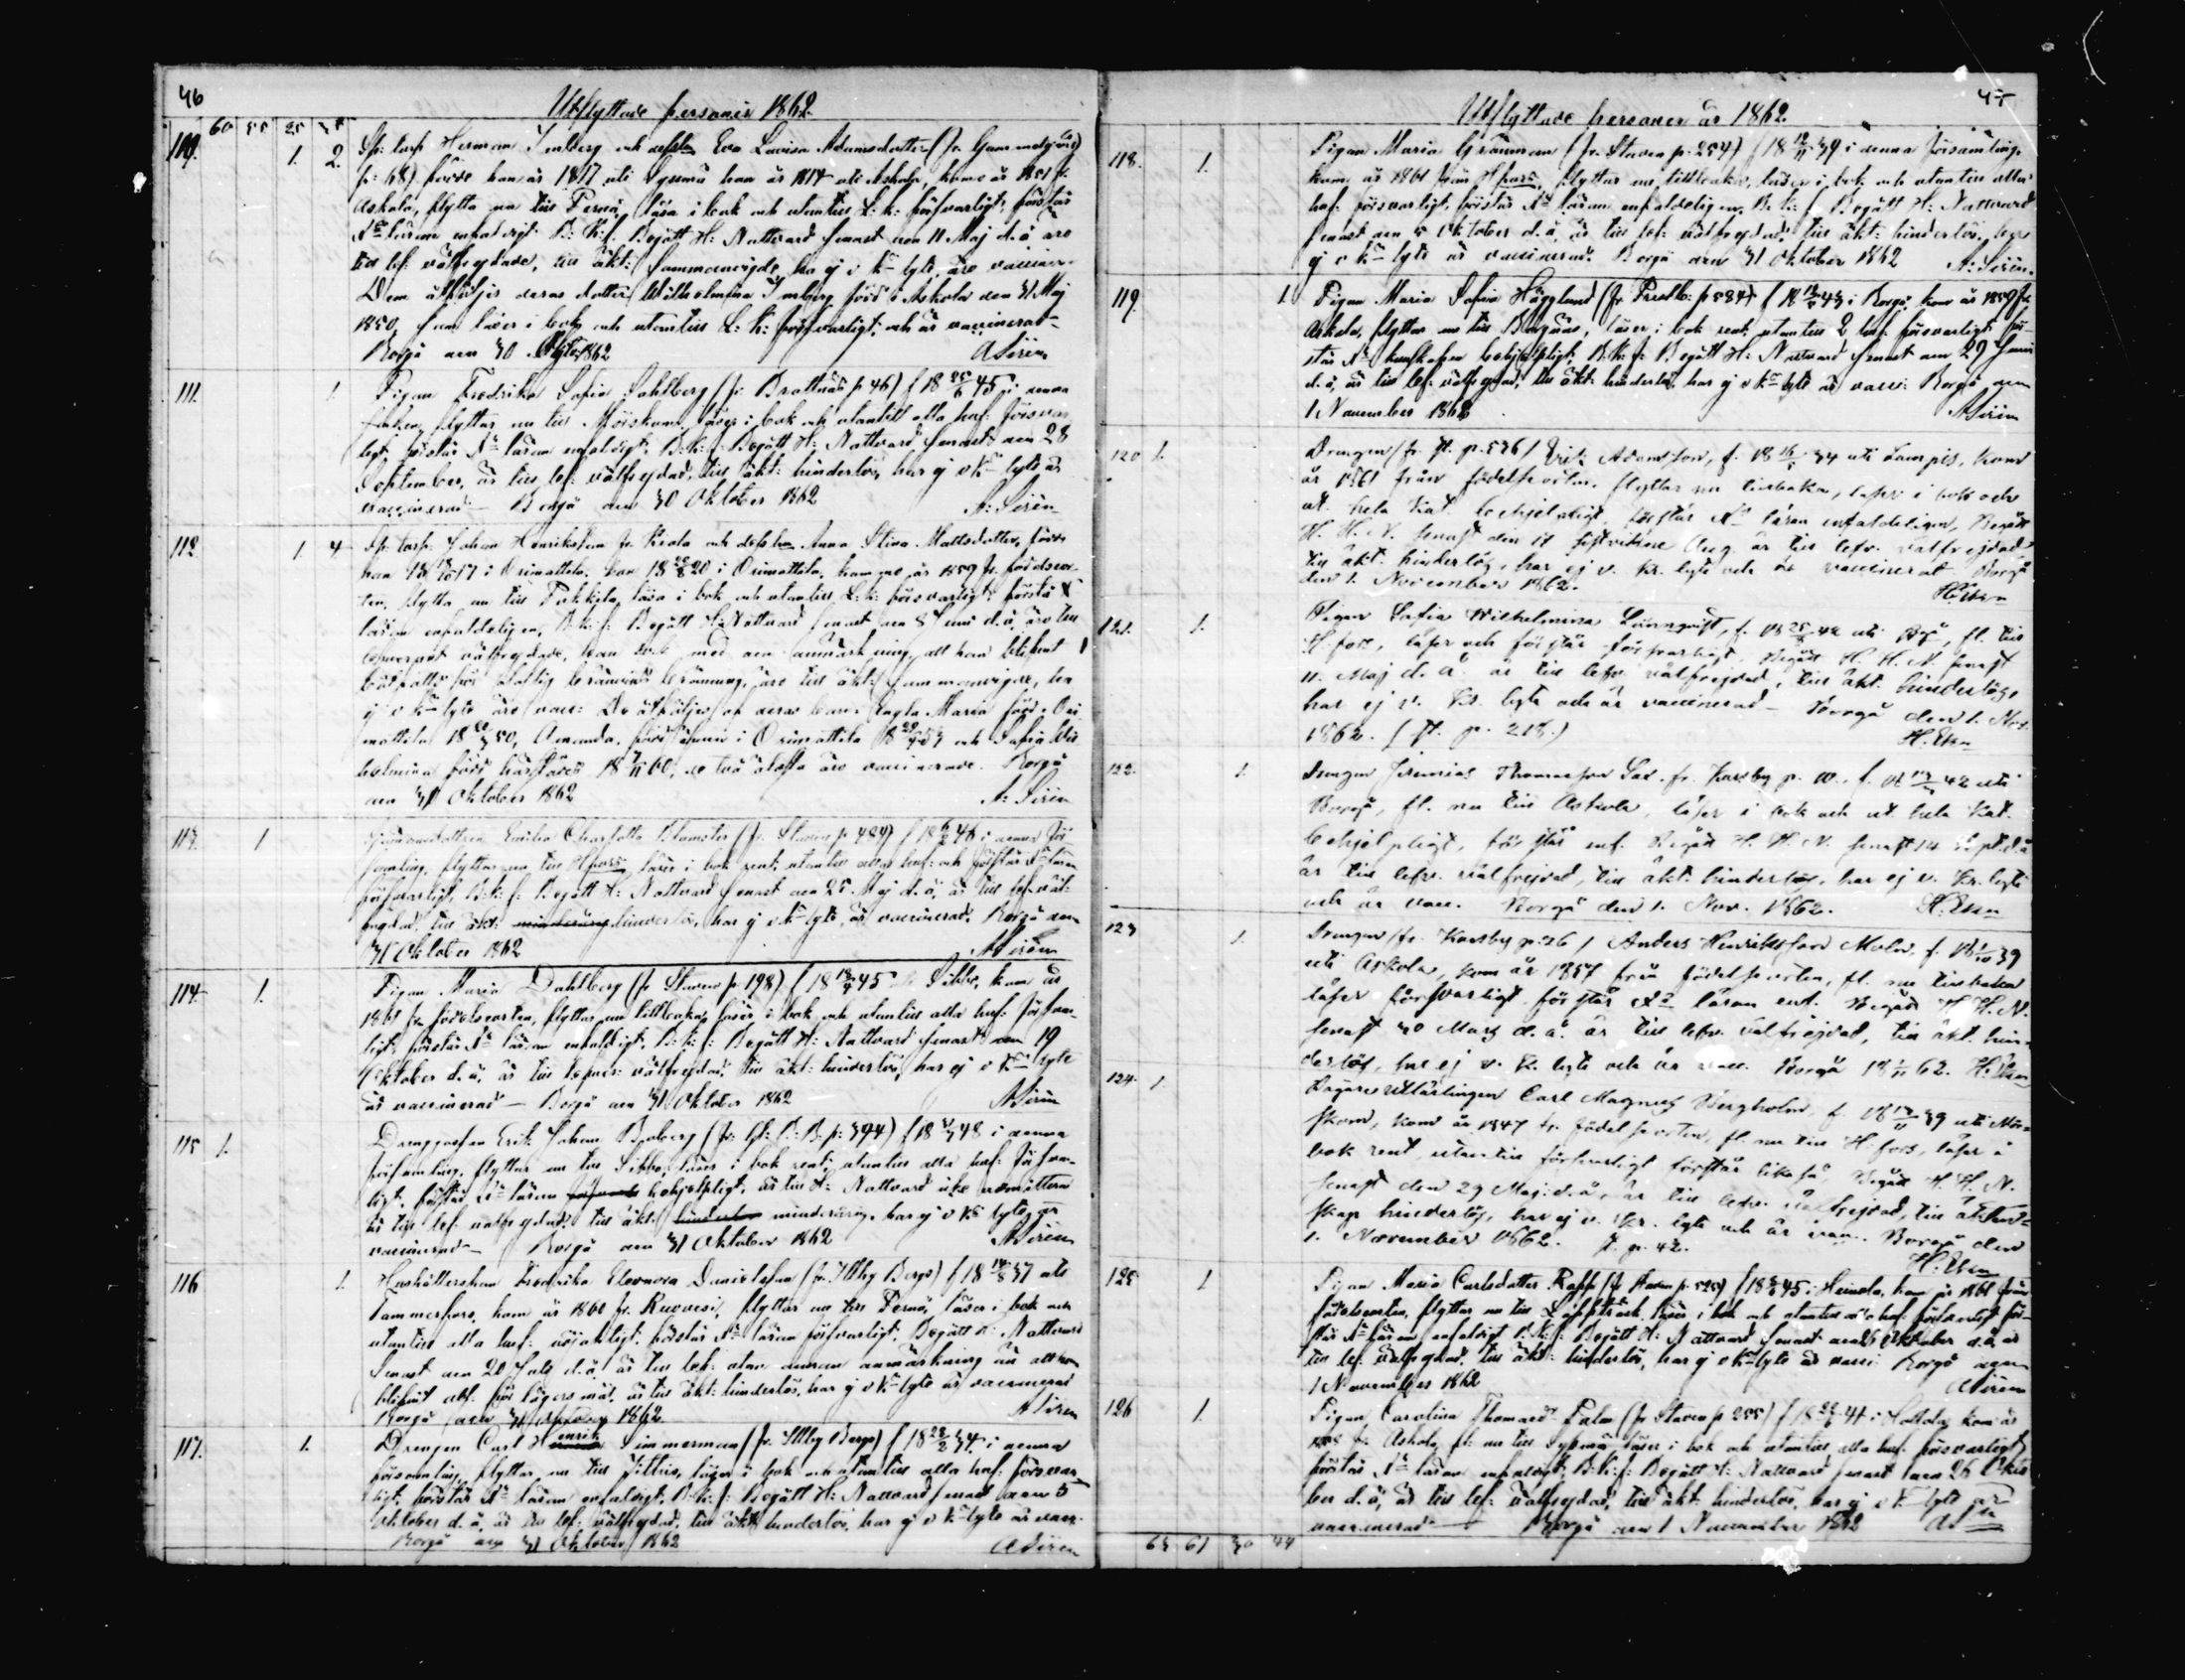 46
Utflyttade personer 1862.
60 55 25 35
109. 1. 2. Sp: torp Herman Imberg och Eva Lovisa Adamsdotter (fr. Gammelgård
p: 68) född han år 1817 uti hon år 1814 uti Askola, komo år 1851 fr.
Askola, flytta nu till Perno, läsa i bok och utantill L: k: försvarligt, förstår
läran enfaldigt. B: k: f: Begått H: Nattvard senast den 11 Maj d. å. äro
till lef: välfrejdade, till äkt: sammanvigde, ha ej v. k. lyte, äro vaccin.
Dem åtföljer deras dotter Wilhelmina Imberg född i Askola den 31 Maj
1850, hon läser i bok och utantill L: k: försvarligt, och är vaccinerad
Borgå den 30 1862 A Sirén
111. 1. Pigan Fredrika Sofia Sahlberg (fr. p 46) f 18 45 i denna
flyttar nu till Mörskom, läser i bok och utantill alla huf. försvar
ligt, förstår läran enfaldigt. B: k: f: Begått H: Nattvard senast den 28
September, är till lef: välfrejdad, till äkt: hinderlös, har ej v k lyte är
vaccinerad – Borgå den 30 Oktober 1862 A: Sirén
112 1 4 Sp: torp. Johan Henriksson fr. och Anna Stina Mattsdotter, född
han 18 17 i Orimattila, hon 18 20 i Orimattila, kommo år 1859 fr. födelseor
ten, flytta nu till läsa i bok och utantill L: k: försvarligt förstå
läran enfaldeligen, B: k: f: Begått H: Nattvard senast den 8 Juni d. å, äro till
välfrejdade, han dock med den anmärkning att han blifvit
bötfälld för olaglig bränvins bränning, äro till äkt: sammanvigde, ha
ej v k lyte äro vacc: De åtföljes af deras barn Maria född i Ori
mattila 18 50, Amanda, född i Orimattila 18 53 och Sofia Wil
helmina född härstädes 18 60, de två äldsta äro vaccinerade. Borgå
den 31 Oktober 1862 A: Sirén
113. 1 Emilia Charlotta (fr. Staden p 484) f 18 46 i denna för
samling, flyttar nu till Hfors läser i bok rent, utantill alla huf: och förstår läran
försvarligt, B: k: f: Begått H: Nattvard senast den 25 Maj d. å, är till lef. väl
frejdad, till äkt: hinderlös, har ej v k lyte, är vaccinerad. Borgå den
31 Oktober 1862 A Sirén
114. 1. Pigan Maria Dahlberg (fr Staden p 198) f 18 45 i Sibbo, kom år
1861 fr födelseorten, flyttar nu tillbaka, läser i bok och utantill alla huf: försvar
ligt förstår läran enfaldigt. B: k: f: Begått H: Nattvard senast den 19
Oktober d. å, är till lefver: välfrejdad, till äkt: hinderlös, har ej v k lyte
är vaccinerad – Borgå den 31 Oktober 1862 A Sirén
115 1. Drenggossen Erik Johan Byoberg (fr: p: 394) f 18 48 i denna
församling, flyttar nu till Sibbo, läser i bok rent, utantill alla huf: försvar
ligt, förstår läran behjelpligt, är till H: Nattvard icke admitterad
är till lef: välfrejdad till äkt: minderårig, har ej v k lyte, är
vaccinerad – Borgå den 31 Oktober 1862 A Sirén
116 1. Fredrika Eleonora Danielsson (fr. Illby Bergs) f 18 37 uti
Tammerfors, kom år 1860 fr. Ruovesi, flyttar nu till Perno, läser i bok och
utantill alla huf: förstår läran försvarligt. Begått H: Nattvard
senast den 20 July d. å. är till lef: utan annan anmärkning än att hon
blifvit abs. för lägersmål, är till äkt: hinderlös, har ej v k lyte är vaccinerad
Borgå den 31 1862 A Sirén
117. 1. Drengen Carl Henrik Simmerman (fr. Illby Bergs) f 18 34 i denna
församling, flyttar nu till Pittkis, läser i bok och utantill alla huf: försvar
ligt, förstår läran enfaldigt, B: k: f: Begått H: Nattvard senast den 5
Oktober d. å. är till lef: välfrejdad, till äkt: hinderlös, har ej v k lyte är vacc.
Borgå den 31 Oktober 1862 A Sirén
47
Utflyttade personer år 1862
118. 1. Pigan Maria Gränman (fr. Staden p. 254) f 18 39 i denna församling,
kom år 1861 från Hfors, flyttar nu tillbaka, läser i bok och utantill alla
huf: försvarligt, förstår läran enfaldeligen, B: k: f: Begått H: Nattvard
senast den 5 Oktober d. å, är till lef: välfrejdad, till äkt: hinderlös,
ej v k lyte är vaccinerad. Borgå den 31 Oktober 1862 A: Sirén.
119. 1 Pigan Maria Sofia Hägglund (fr p 584) f 18 43 i Borgå, kom år 1859 fr.
Askola, flyttar nu till Borgnäs, läser i bok rent, utantill 2 huf: försvarligt för
står kunskapen behjelpligt. B: k: f: Begått H: Nattvard senast den 29 Juni
d. å, är till lef: välfrejdad, till äkt: hinderlös, har ej v k lyte är vacc: Borgå den
1 November 1862 A Sirén
120 1. Drengen (fr. St. p. 536) Erik Adamsson, f. 18 34 uti Lampis, kom
år 1861 från födelseorten, flyttar nu tillbaka, läser i bok och
ut. hela Kat. behjelpligt, förstår läran enfaldeligen, Begått
H. H. N. senast den 17 sistvikne Aug. är till lefv. välfrejdad
till äkt. hinderlös, har ej v. kr. lyte och är vaccinerad Borgå
den 1. November 1862. H: Eken
121. 1. Pigan Sofia Wilhelmina Lönnqvist, f. 18 42 uti Bgå, fl. till
H:fors, läser och förstår försvarligt. Begått H. H. N. senast
11. Maj d. å. är till lefv. välfrejdad, till äkt. hinderlös,
har ej v. kr. lyte och är vaccinerad – Borgå den 1. Nov.
1862. (St. p. 218.) H. Eken
122. 1. Drengen Jeremias Thomasson fr. Karsby p. 10. f. 18 42 uti
Borgå, fl. nu till Askola, läser i bok och ut. hela Kat.
behjelpligt, förstår enf. Begått H. H. N. senast 14 Sept. d. å
är till lefv. välfrejdad, till äkt. hinderlös, har ej v. kr. lyte
och är vacc. Borgå den 1. Nov. 1862. H: Eken
123 1. Drengen (fr. Karsby p: 26) Anders Henriksson Malm, f. 18 39
uti Askola, kom år 1857 från födelseorten, fl. nu tillbaka
läser försvarligt förstår läran enf. Begått H. H. N.
senast 30 Mars d. å. är till lefv. välfrejdad, till äkt. hin-
derlös, har ej v. k. lyte och är vacc. Borgå 18 62. H: Eken
124. 1. Carl Magnus Bergholm, f. 18 39 uti Mör-
skom, kom år 1847 fr. födelseorten, fl. nu till H:fors, läser i
bok rent, utantill försvarligt förstår likaså, Begått H. H. N.
senast den 29 Maj: d. å, är till lefv. välfrejdad, till äkten-
skap hinderlös, har ej v. kr. lyte och är vacc. Borgå den
1. November 1862. St. p. 42. H: Eken
125 1 Pigan Maria Carlsdotter Rapp (fr Staden p: 525) f 18 45 i Heinola, kom år 1861 från
födelseorten, flyttar nu till Lappträsk, läser i bok och utantill alla huf: försvarligt för
står läran enfaldigt B: k: f: Begått H: Nattvard senast den 26 Oktober d. å, är
till lef: välfrejdad, till äkt: hinderlös, har ej v k lyte är vacci Borgå den
1 November 1862 A Sirén
126 1. Pigan Carolina Thomasd: Palm (fr Staden p 255) f 18 41 i Hollola, kom år
fr. Askola, fl: nu till läser i bok och utantill alla huf: försvarligt,
förstår läran enfaldigt, B: k: f: Begått H: Nattvard senast den 26 Okto
ber d. å, är till lef: välfrejdad, till äkt: hinderlös, har ej v k lyte är
vaccinerad – Borgå den 1 November 1862
65 61 30 44